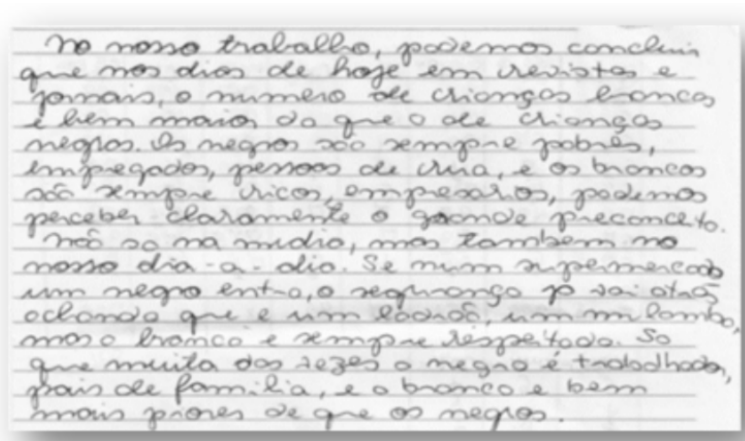 No nosso trabalho, podemos concluir
que nos dias de hoje em revistas e
jornais, o numero de crianças brancas
e bem maior do que o de crianças
negros. Os negros são sempre pobres,
empregados, pessoas de rua, e os brancos
são sempre ricos, empresarios, podemos
perceber claramente o grande preconceito.
Não so na midia, mas tambem no
nosso dia-a-dia. Se num supermercado
um negro entra, o segurança ja vai atrás
achando que e um ladrão, um
mas o branco e sempre respeitado. So
que muita das vezes o negro é trabalhador,
pais de familia, e o branco e bem
mais piores de que os negros.